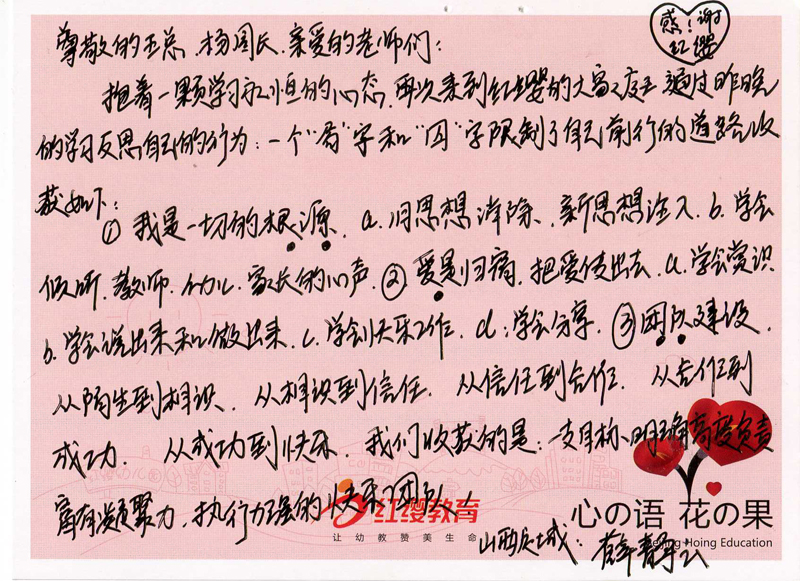 感!谢
红缨
尊敬的王总、杨园长、亲爱的老师们:
抱着一颗学习永恒的心态,再次来到红缨的大家庭通过昨晚
的学习反思自己的行为:一个"看"字和"囚"字限制了自己前行的道路收
获如下:
① 我是一切的根源. a.旧思想消除、新思想注入 b.学会
倾听.教师、幼儿、家长的心声. ② 爱是归宿,把爱传出去. a.学会赏识
b.学会说出来和做出来. c.学会快乐工作. d:学会分享. ③ 团队建设.
从陌生到相识、从相识到信任. 从信任到合作. 从合作到
成功. 从成功到快乐. 我们收获的是:一支目标明确高度负责
富有凝聚力,执行力强的快乐团队!
红缨教育
让幼教赞美生命
心の语 花の果
Beijing Hoing Education
山西